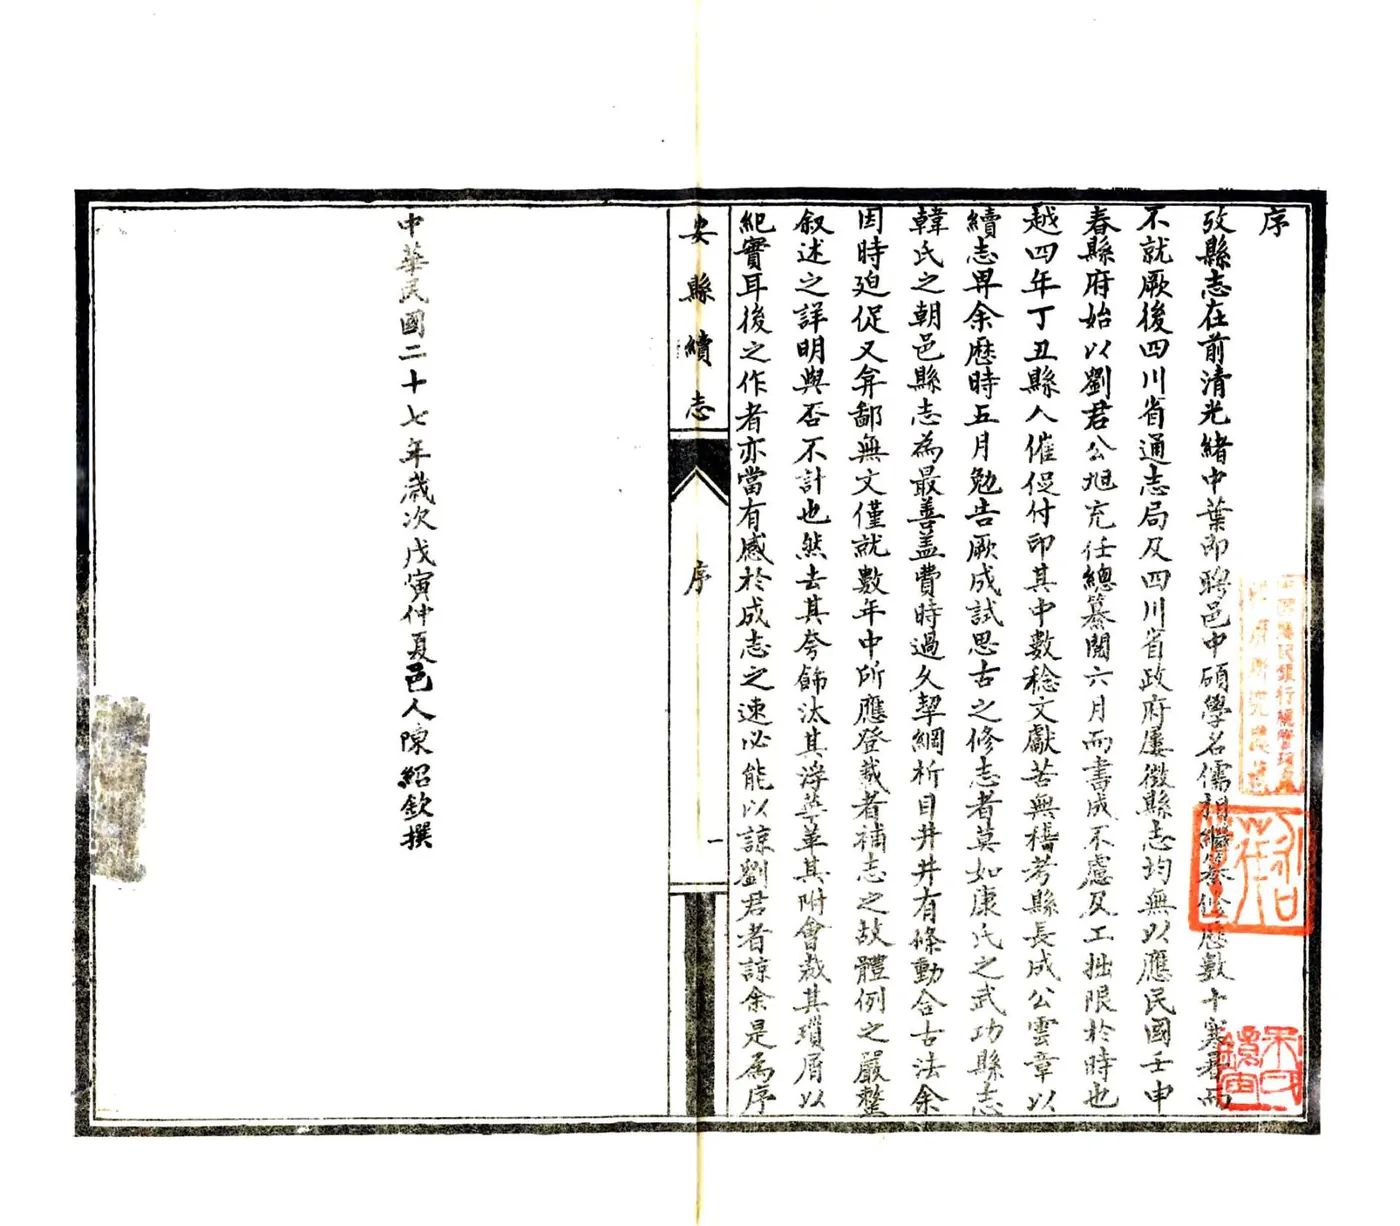 序
攷縣志在前清光緒中葉即聘邑中碩學名儒相繼纂修歷數十寒暑而
不就厥後四川省通志局及四川省政府屢徵縣志均無以應民國壬申
春縣府始以劉君公旭充任總纂閱六月而書成不慮及工拙限於時也
越四年丁丑縣人催促付印其中數稔文獻苦無稽考縣長成公雲章以
續志畀余歷時五月勉告厥成試思古之修志者莫如康氏之武功縣志
韓氏之朝邑縣志為最善蓋費時過久挈綱析目井井有條動合古法余
囙時廹促又弇鄙無文僅就數年中所應登載者補志之故體例之嚴整
叙述之詳明與否不計也然去其夸飾汰其浮華革其附會裁其瑣屑以
紀實耳後之作者亦當有感於成志之速必能以諒劉君者諒余是為序
安縣續志
序
一
中華民國二十七年歲次戊寅仲夏邑人陳紹欽撰